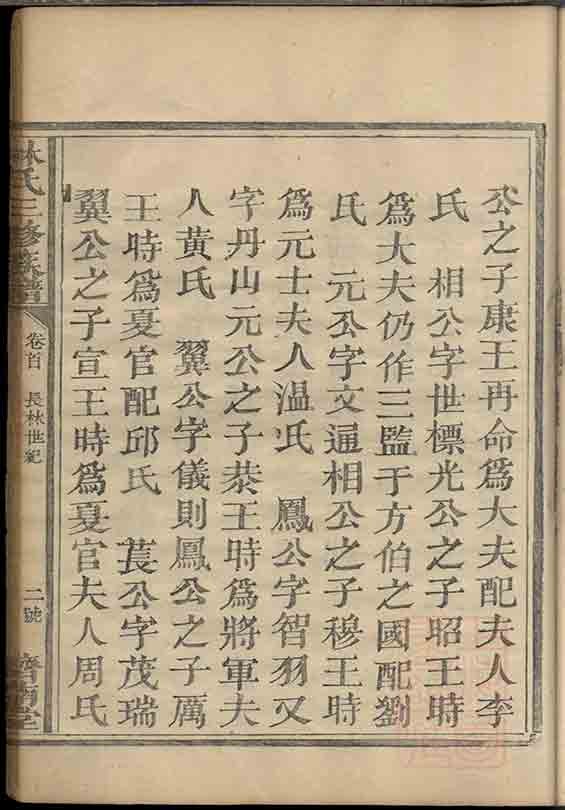 公之子康王再命爲大夫配夫人李
氏　相公字世標光公之子昭王時
爲大夫仍作三監于方伯之國配劉
氏　元公字文通相公之子穆王時
爲元士夫人温氏　鳳公字智羽又
字丹山元公之子恭王時爲將軍夫
人黃氏　翼公字儀則鳳公之子厲
王時爲夏官配邱氏　萇公字茂瑞
翼公之子宣王時爲夏官夫人周氏
林氏三修族譜
卷首　長林世紀
二號
濟南堂